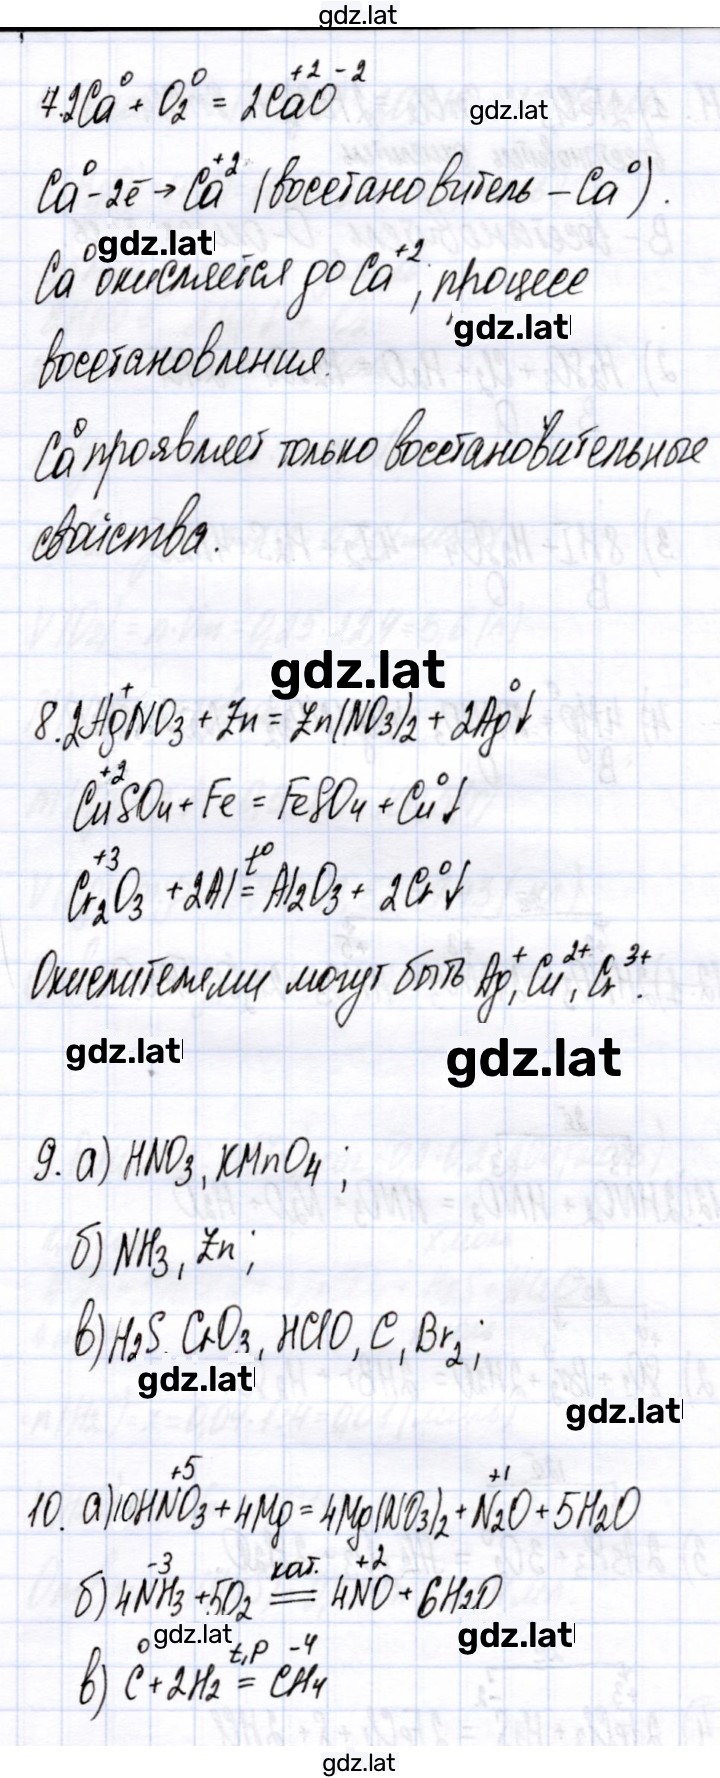 gdz.lat
+2 -2
7. 2Ca⁰ + O₂⁰ = 2CaO
gdz.lat
Ca⁰ - 2ē → Ca⁺² (восстановитель – Ca⁰).
gdz.lat
Ca⁰ окисляется до Ca⁺², процесс
gdz.lat
восстановления.
Ca⁰ проявляет только восстановительные
свойства.
gdz.lat
8. 2Ag⁺NO₃ + Zn = Zn(NO₃)₂ + 2Ag⁰↓
+2
CuSO₄ + Fe = FeSO₄ + Cu⁰↓
+3 t⁰
Cr₂O₃ + 2Al = Al₂O₃ + 2Cr⁰↓
Окислителями могут быть Ag⁺, Cu²⁺, Cr³⁺.
gdz.lat
gdz.lat
9. а) HNO₃, KMnO₄;
б) NH₃, Zn;
в) H₂S, CrO₃, HClO, C, Br₂;
gdz.lat
gdz.lat
+5 +1
10. а) 10HNO₃ + 4Mg = 4Mg(NO₃)₂ + N₂O + 5H₂O
-3 кат. +2
б) 4NH₃ + 5O₂ = 4NO + 6H₂O
gdz.lat
gdz.lat
0 t,p -4
в) C + 2H₂ = CH₄
gdz.lat